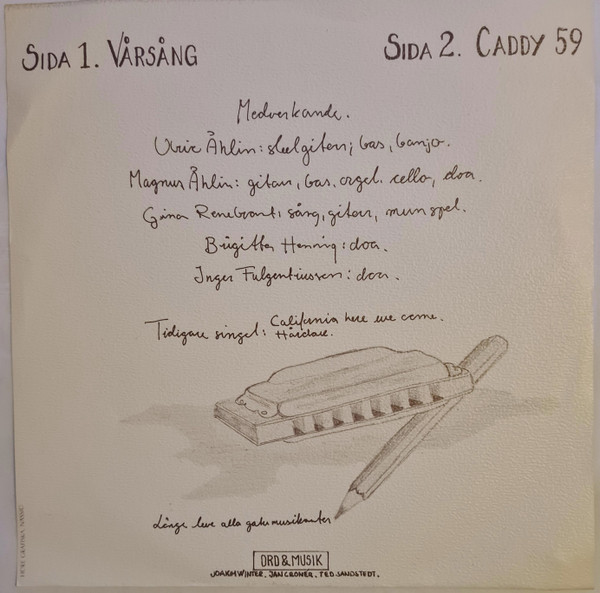 SIDA 1. VÅRSÅNG
SIDA 2. CADDY 59
Medverkande.
Ulric Åhlin: steelgitarr, bas, banjo.
Magnus Åhlin: gitarr, bas, orgel, cello, doa.
Gina sång, gitarr, munspel.
Birgitta Henning: doa.
Inger Fulgentiusson: doa.
Tidigare singel: California here we come.
Hårdare.
Länge leve alla gatumusikanter
ORD & MUSIK
JOAKIM WINTER, JAN CRONER, TED SANDSTEDT.